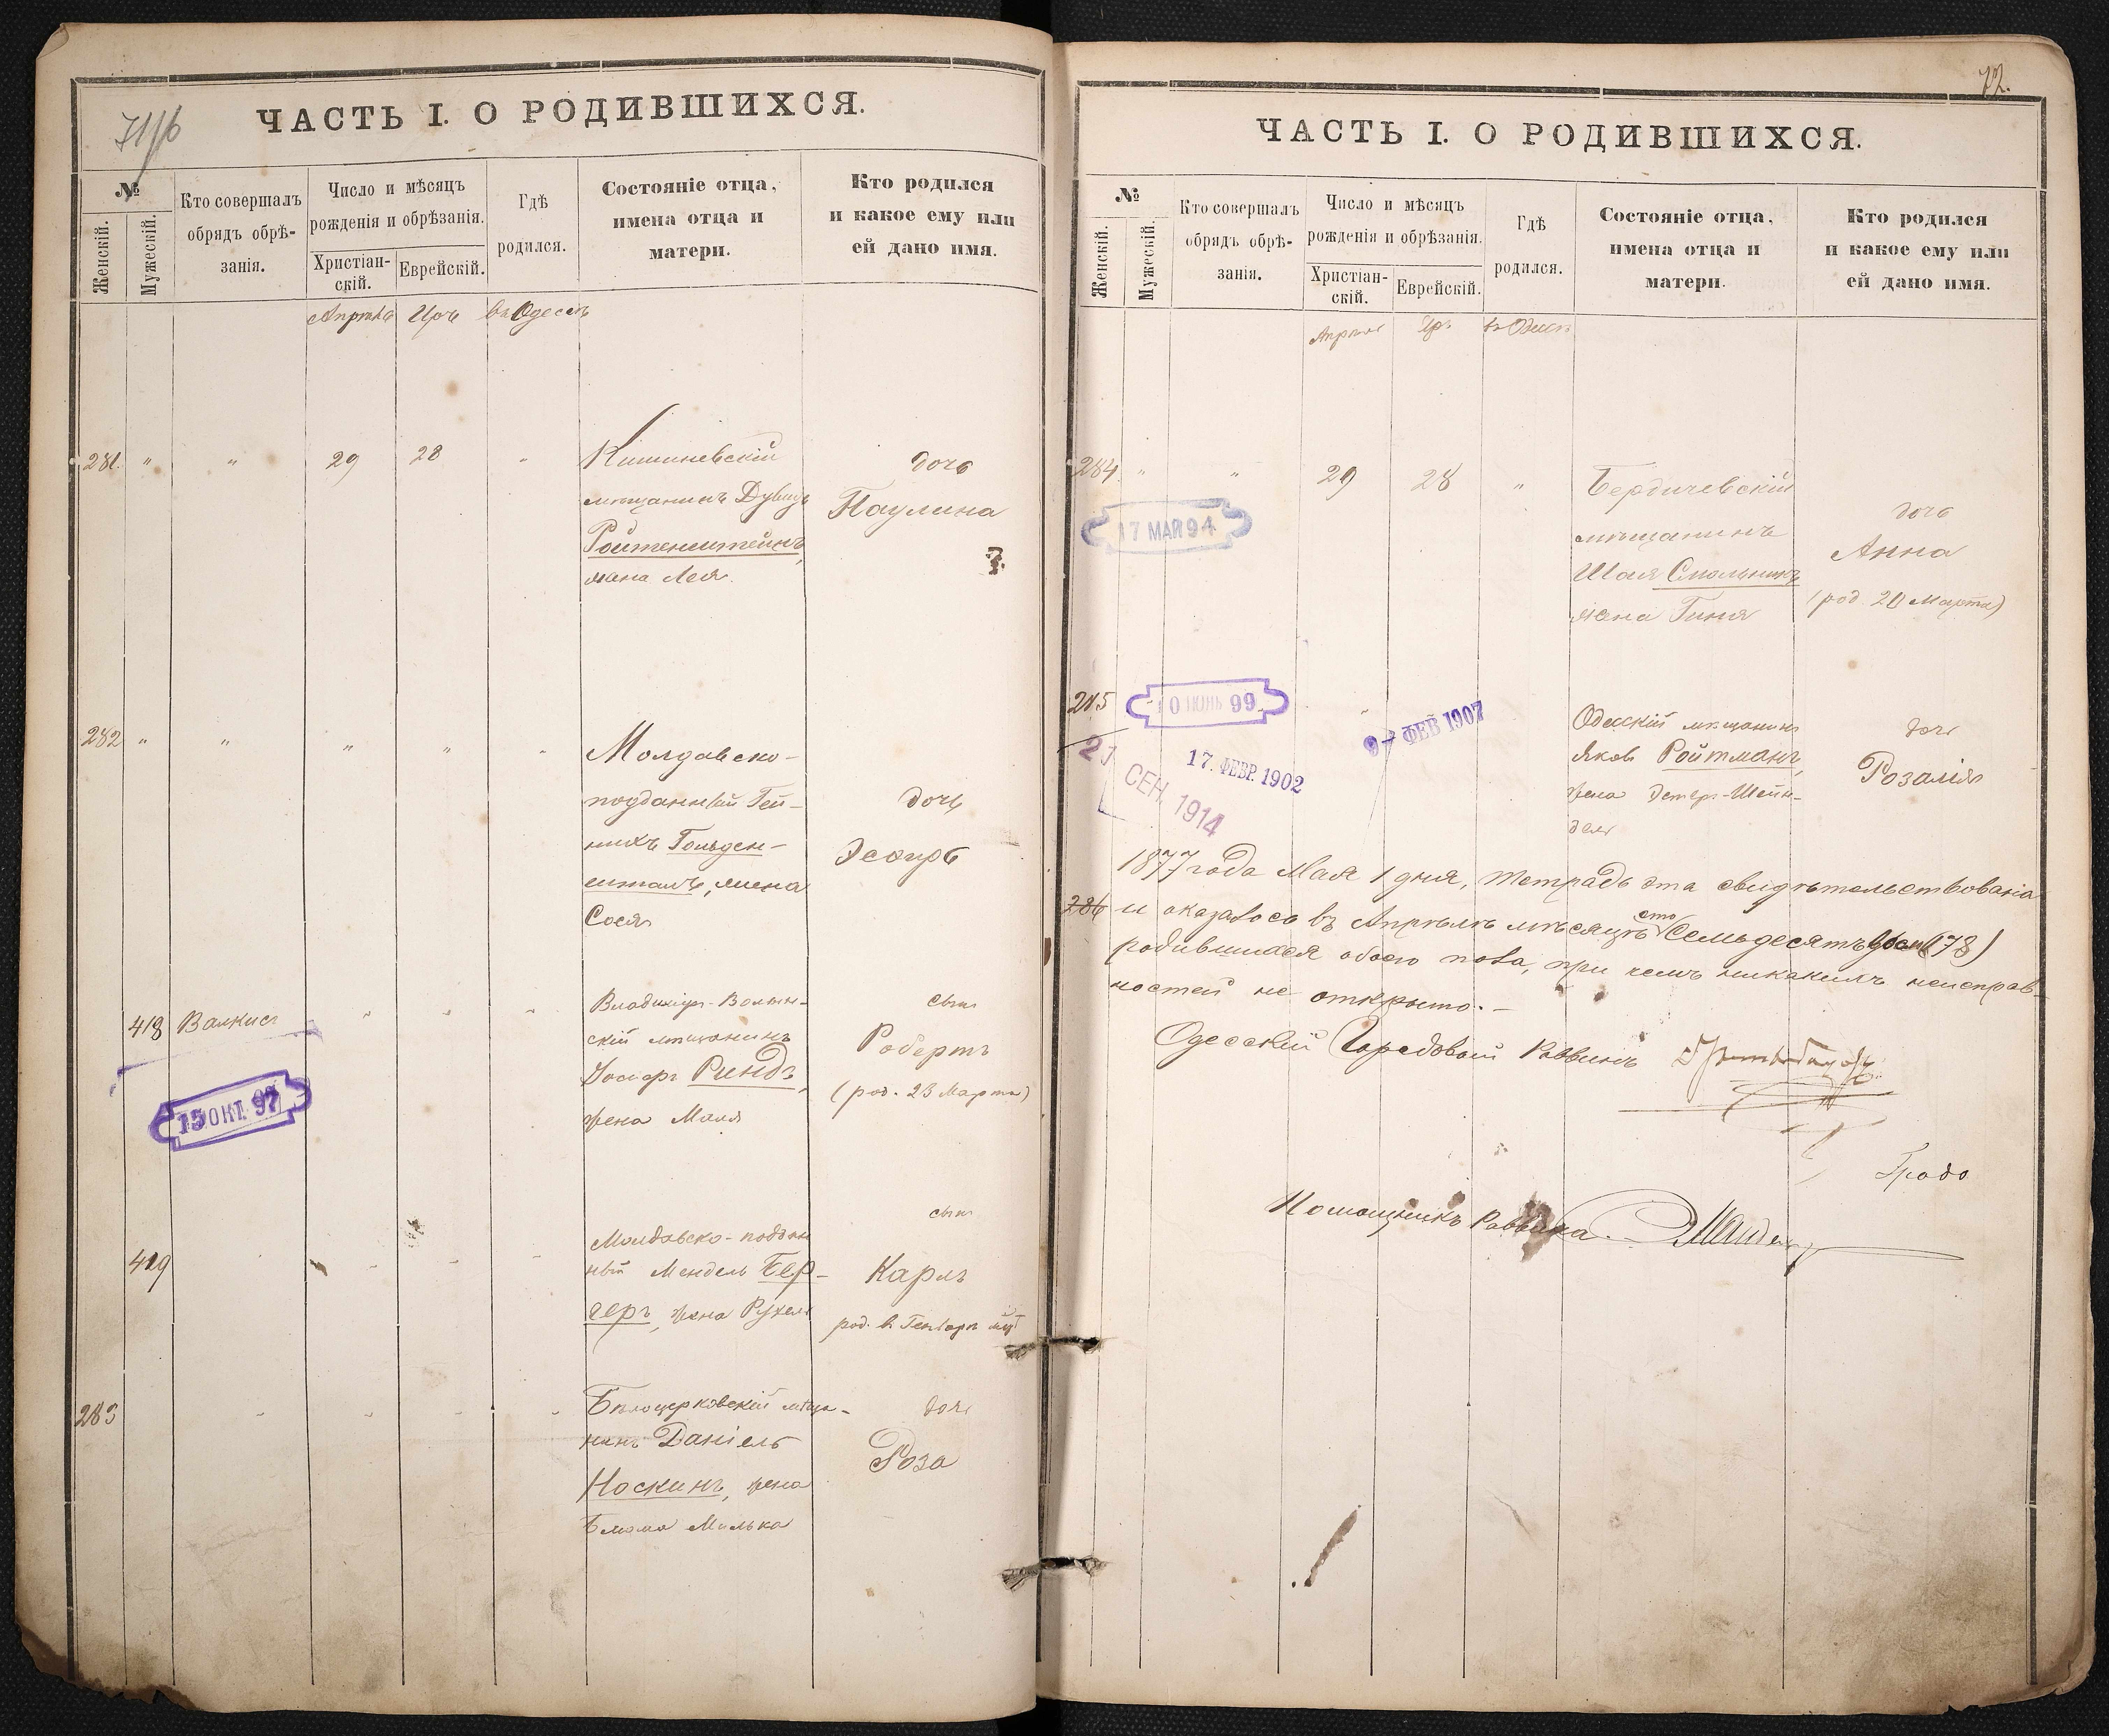 ЧАСТЬ I. О РОДИВШИХСЯ.
№
Женскій.
Мужескій.
Кто совершалъ
обрядъ обрѣ-
занія.
Число и мѣсяцъ
рожденія и обрѣзанія.
Христіан-
скій.
Еврейскій.
Гдѣ
родился.
Состояніе отца,
имена отца и
матери.
Кто родился
и какое ему или
ей дано имя.
Апрѣль Іаръ въ Одессѣ
281. " " 29 28 "
Кишиневскій
мѣщанинъ Дувидъ
Ройтенштейнъ,
жена Лея.
дочь
Паулина
282 " " " " "
Молдавско-
подданный Гей-
нихъ Гольден-
шталъ, жена
Сося
дочь
Эсѳирь
418 Валкисъ " " "
Владимір-Волын-
скій мѣщанинъ
Іосифъ Риндъ,
жена Маля
сынъ
Робертъ
(род. 23 Марта)
15 ОКТ. 97
419
Молдавско-поддан
ный Мендель Бер-
геръ, жена Рухель
сынъ
Карлъ
283
Бѣлоцерковскій мѣща-
нинъ Даніель
Носкинъ, жена
Блюма Милька
дочь
Роза
72.
ЧАСТЬ I. О РОДИВШИХСЯ.
№
Женскій.
Мужескій.
Кто совершалъ
обрядъ обрѣ-
занія.
Число и мѣсяцъ
рожденія и обрѣзанія.
Христіан-
скій.
Еврейскій.
Гдѣ
родился.
Состояніе отца,
имена отца и
матери.
Кто родился
и какое ему или
ей дано имя.
Апрѣль Іаръ въ Одессѣ
284 " " 29 28 "
17 МАЙ 94
Бердичевскій
мѣщанинъ
Шая Смольникъ
жена Гиня
дочь
Анна
(род. 20 Марта)
285
10 ІЮНЬ 99
17. ФЕВР. 1902
ФЕВ 1907
21 СЕН. 1914
Одесскій мѣщанинъ
Яковъ Ройтманъ,
жена Эстеръ-Шейн-
для
дочь
Розалія
1877 года Мая 1 дня, тетрадь эта свидѣтельствована
286 и оказалось въ Апрѣлѣ мѣсяцѣ сто Семьдесятъ восемь (178)
родившихся обоего пола, при чемъ никакихъ неисправ-
ностей не открыто. -
Одесскій Городовой Раввинъ
Помощникъ Раввина.